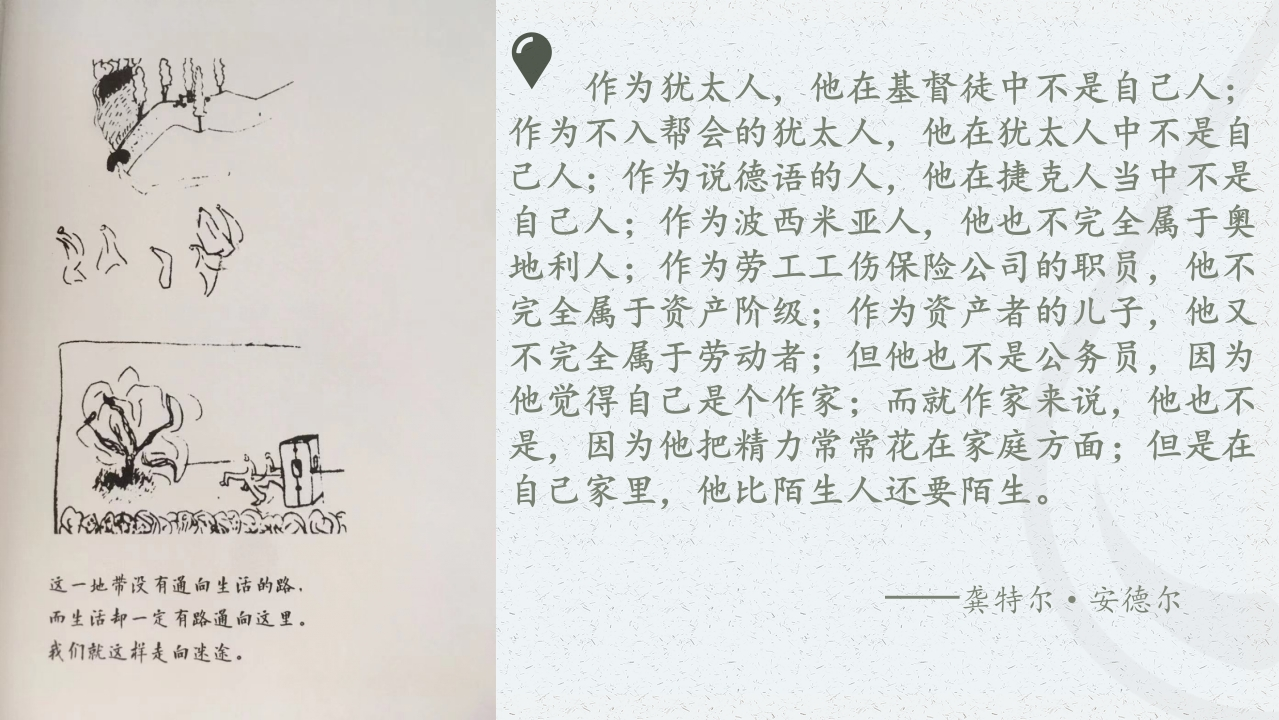 这一地带没有通向生活的路，
而生活却一定有路通向这里。
我们就这样走向迷途。
作为犹太人，他在基督徒中不是自己人；
作为不入帮会的犹太人，他在犹太人中不是自
己人；作为说德语的人，他在捷克人当中不是
自己人；作为波西米亚人，他也不完全属于奥
地利人；作为劳工工伤保险公司的职员，他不
完全属于资产阶级；作为资产者的儿子，他又
不完全属于劳动者；但他也不是公务员，因为
他觉得自己是个作家；而就作家来说，他也不
是，因为他把精力常常花在家庭方面；但是在
自己家里，他比陌生人还要陌生。
——龚特尔·安德尔